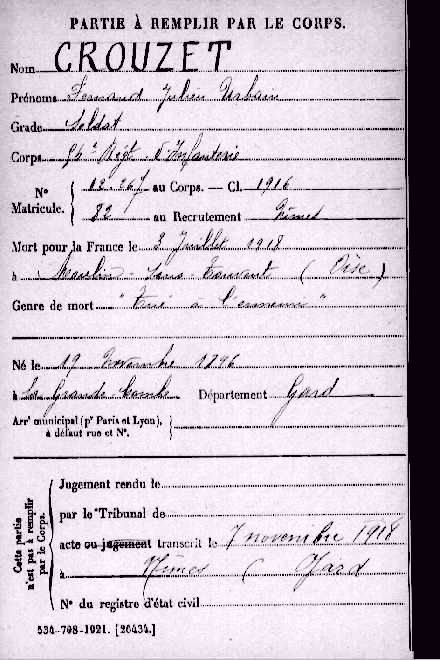 PARTIE À REMPLIR PAR LE CORPS.
Nom CROUZET
Prénoms Fernand Julien Urbain
Grade Soldat
Corps Régt d'Infanterie
N° Matricule. { 12.267 au Corps. — Cl. 1916
82 au Recrutement Nîmes
Mort pour la France le 3 Juillet 1918
à Moulin-sous-Touvent (Oise)
Genre de mort "Tué à l'ennemi"
Né le 19 Novembre 1896
à La Grande Combe Département Gard
Arrt municipal (pr Paris et Lyon),
à défaut rue et N°.
Cette partie
n'est pas à remplir
par le Corps.
Jugement rendu le
par le Tribunal de
acte ou jugement transcrit le 7 novembre 1918
à Nîmes (Gard
N° du registre d'état civil
534-708-1921. [26434.]